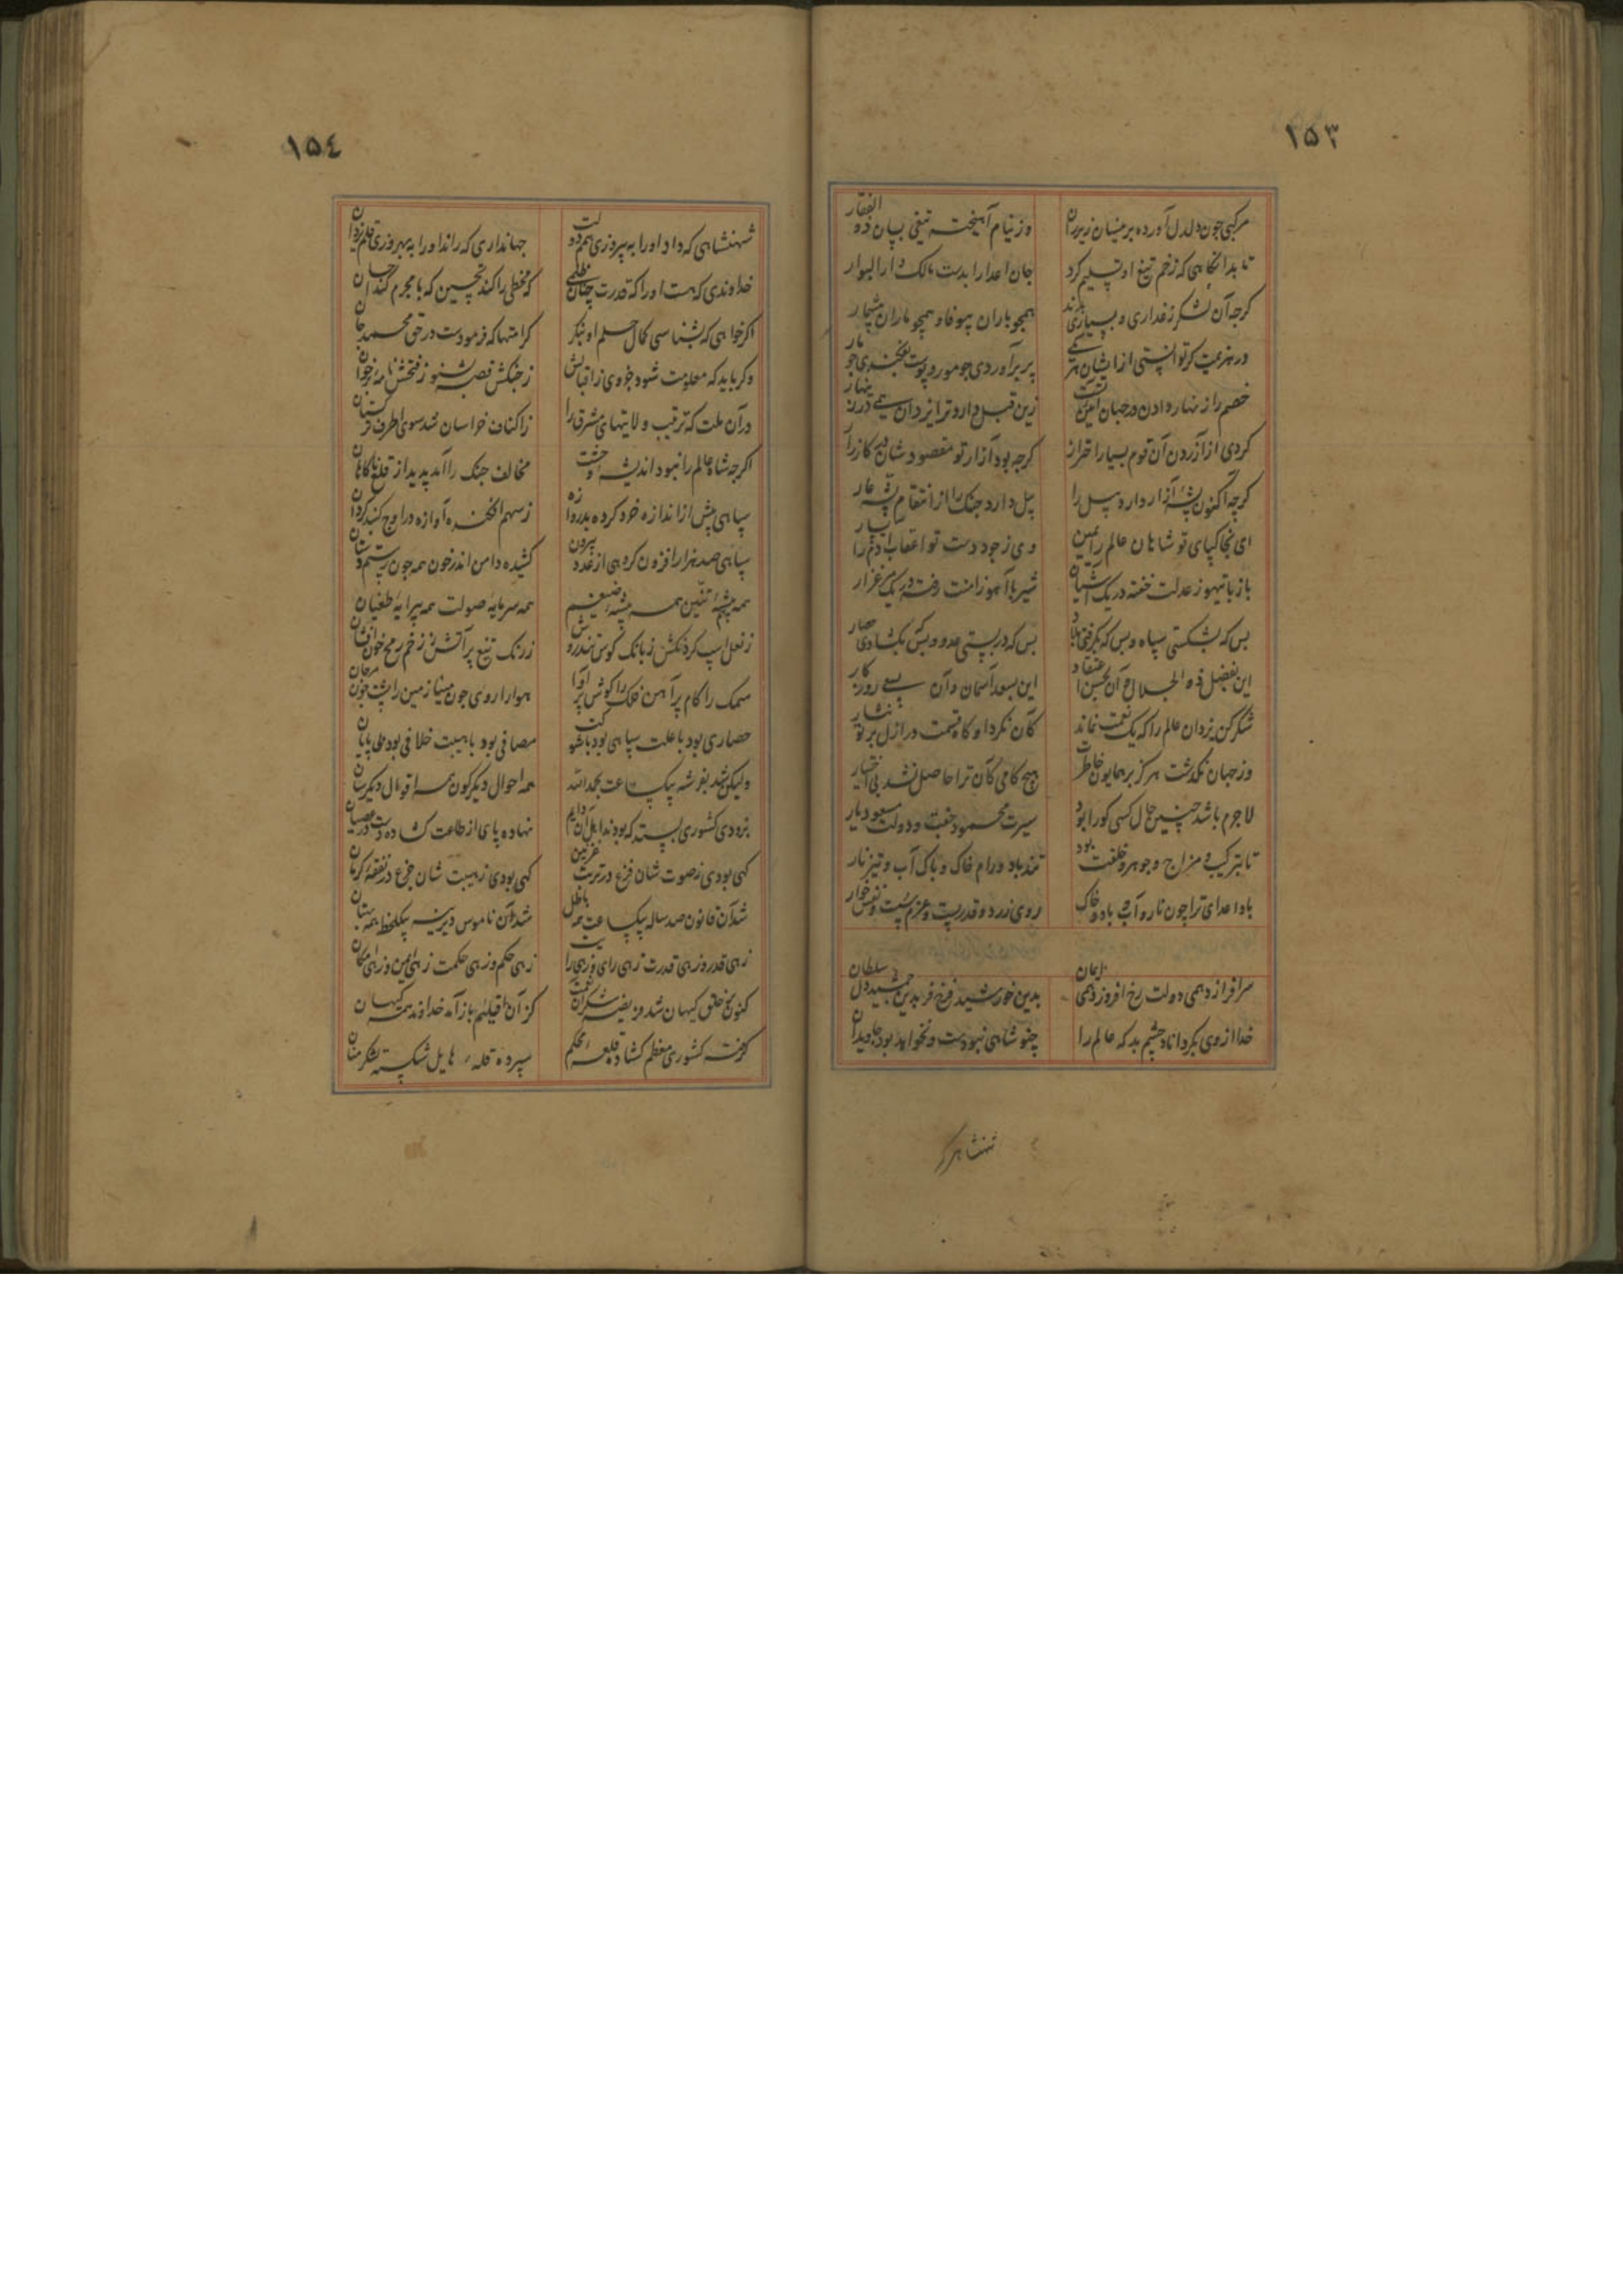 ١٥٣
مرکبی چون دلدل آورده بر میسان زیرران وز نیام آهیخته تیغی بسان ذو الفقار
تا بدانگاهی که زخم تیغ او تسلیم کرد جان اعدا را بدست مالک دار البوار
کرچه آن لشکر ز غداری و بسیاری بدند همچو باران بیوفا و همچو باران بیشمار
در هزیمت کر توانستی از ایشان هر یکی پر برآوردی چو مور و پوست بفکندی چو مار
خصم را زنهار دادن در جهان آیین تست زین قبل دارد ترا یزدان همی در زینهار
کردی از آزردن آن قوم بسیار احتراز کرچه بود آزار تو مقصود شان در کارزار
کرچه اکنون پشه آزار دارد پیل را پیل دارد جنک را از انتقام پشه عار
ای بخاکپای تو شاهان عالم را یمین وی ز جود دست تو اعقاب آدم را یسار
باز با تیهو ز عدلت خفته در یک آشیان شیر با آهو ز امنت رفته در یک مرغزار
بس که بشکستی سپاه و بس که بکرفتی بلاد بس که در بستی عدو و بس که بکشادی حصار
این بفضل ذو الجلال و آن بحسن اعتقاد این بسعد آسمان و آن بسعی روزکار
شکر کن یزدان عالم را که یک نعمت نماند کان نکرد او کاه قسمت در ازل بر تو نثار
وز جهان نکذشت هرکز بر همایون خاطرت هیچ کامی کان ترا حاصل نشد بی اختیار
لاجرم باشد چنین حال کسی کورا بود سیرت محمود و بخت و دولت مسعود یار
تا بترکیب و مزاج و جوهر و خلقت بود تند باد و رام خاک و پاک آب و تیز نار
باد اعدای ترا چون نار و آب و باد و خاک روی زرد و قدر پست و عزم سست و نفس خوار
سرافراز د همی دولت رخ افروزد همی ایمان بدین خورشید فرخ فر بدین جمشید دل سلطان
خدا از وی بکرداناد چشم بد که عالم را چنو شاهی نبودست و نخواهد بود جاویدان
شهنشاهی که
١٥٤
شهنشاهی که داد او را به پیروزی همم دولت جهانداری که راند او را به بهروزی قلم یزدان
خداوندی که هست او را که قدرت چنان حلمی که مخطی را کند تحسین که با مجرم کند احسان
اکر خواهی که بشناسی کمال حلم او بنکر کرامتها که فرمودست در حق محمد خان
وکر باید که معلومت شود جزوی ز اقبالش ز جنکش قصه بشنو ز فتحش نامه برخوان
در آن مدت که ترتیب ولایتهای مشرق را ز اکناف خراسان شد سوی اطراف ترکستان
اکرچه شاه عالم را نبود اندیشه وحشت مخالف جنک را آمد پدید از قلعه ناکاهان
سپاهی پیش از اندازه خود کرده بدروازه ز سهم افکنده آوازه در اوج کنبد کردان
سپاهی صد هزار افزون کروهی از عدد بیرون کشیده دامن اندر خون همه چون رستم دستان
همه سرمایه صولت همه پیرایه طغیان
ز نعل اسپ کرد انکش ز بانک کوس تندر وش ز رنک تیغ پر آتش ز زخم رمح خون افشان
سمک را کام پر آهن فلک را کوش پر آوا هوا را روی چون مینا زمین را پشت چون مرجان
حصاری بود با علت سپاهی بود با شوکت مصافی بود با هیبت خلافی بود بی پایان
ولیکن شد بفر شه بیک ساعت بحمد الله همه احوال دیکرکون همه اقوال دیکرسان
بزودی کشوری بسته که بودند اهل آن دایم نهاده پای از طاعت کشاده دست در عصیان
کهی بودی ز صوت شان فزع در تربت غزنین کهی بودی ز هیبت شان جزع در بقعه کرمان
شد آن قانون صد ساله بیک ساعت همه باطل شد آن ناموس دیرینه بیک لحظه همه بهتان
زهی قدر و زهی قدرت زهی رای و زهی رایت زهی حکم و زهی حکمت زهی امین و زهی امکان
کنون بر خلق کیهان شد فریضه شکر آن نعمت کز آن اقلیم باز آمد خداوند همه کیهان
کرفته کشوری معظم کشاده قلعه محکم سپرده قله هایل شکسته لشکر